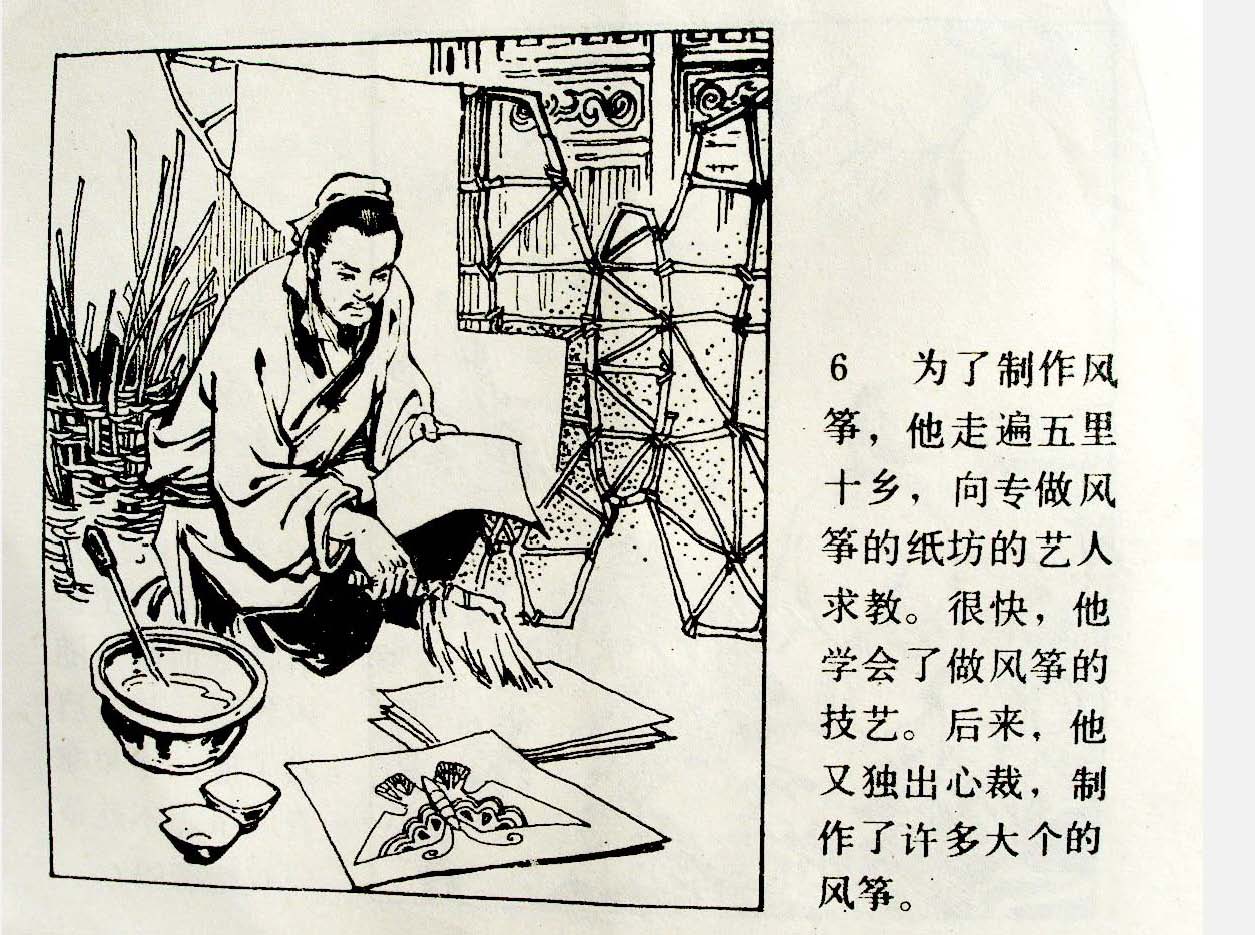 6 为了制作风
筝，他走遍五里
十乡，向专做风
筝的纸坊的艺人
求教。很快，他
学会了做风筝的
技艺。后来，他
又独出心裁，制
作了许多大个的
风筝。